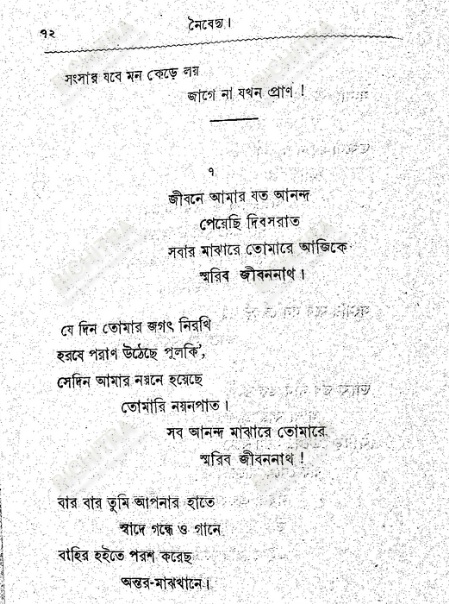 ১২
নৈবেদ্য।
সংসার যবে মন কেড়ে লয়
জাগে না যখন প্রাণ !
৭
জীবনে আমার যত আনন্দ
পেয়েছি দিবসরাত
সবার মাঝারে তোমারে আজিকে
স্মরিব জীবননাথ।
যে দিন তোমার জগৎ নিরখি
হরষে পরাণ উঠেছে পুলকি’,
সেদিন আমার নয়নে হয়েছে
তোমারি নয়নপাত।
সব আনন্দ মাঝারে তোমারে
স্মরিব জীবননাথ !
বার বার তুমি আপনার হাতে
স্বাদে গন্ধে ও গানে
বাহির হইতে পরশ করেছ
অন্তর-মাঝখানে।